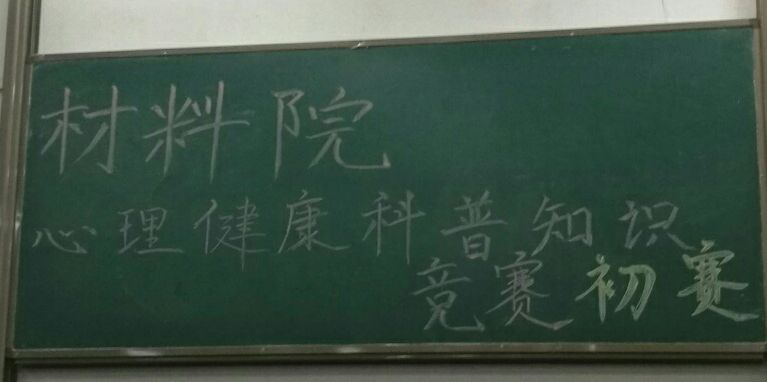 材料院
心理健康科普知识
竞赛初赛